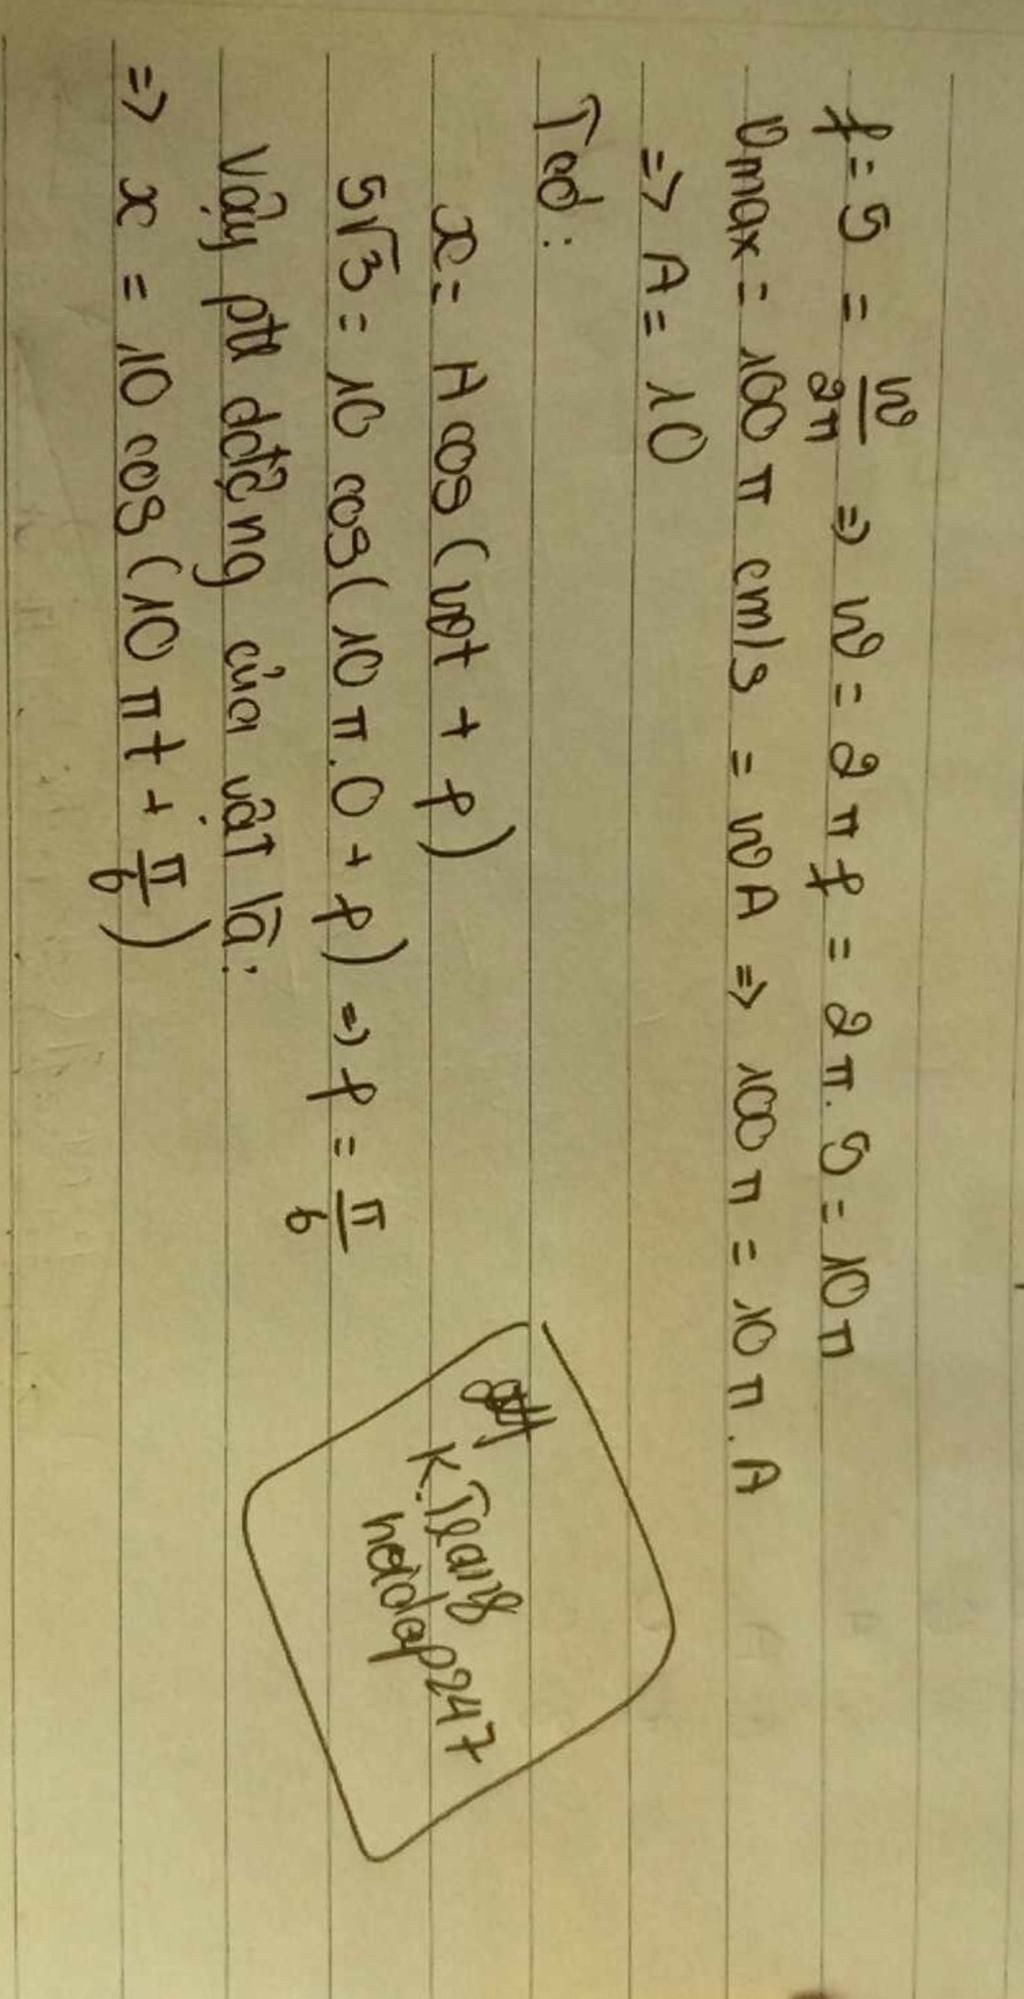 f = 5 = w/2π => w = 2πf = 2π.5 = 10π
vmax = 100π cm/s = wA => 100π = 10π.A
=> A = 10
Tcó:
x = A cos(wt + φ)
5√3 = 10 cos(10π.0 + φ) => φ = π/6
Vậy pt dđộng của vật là:
=> x = 10 cos(10πt + π/6)
K.Trang
hoidap247